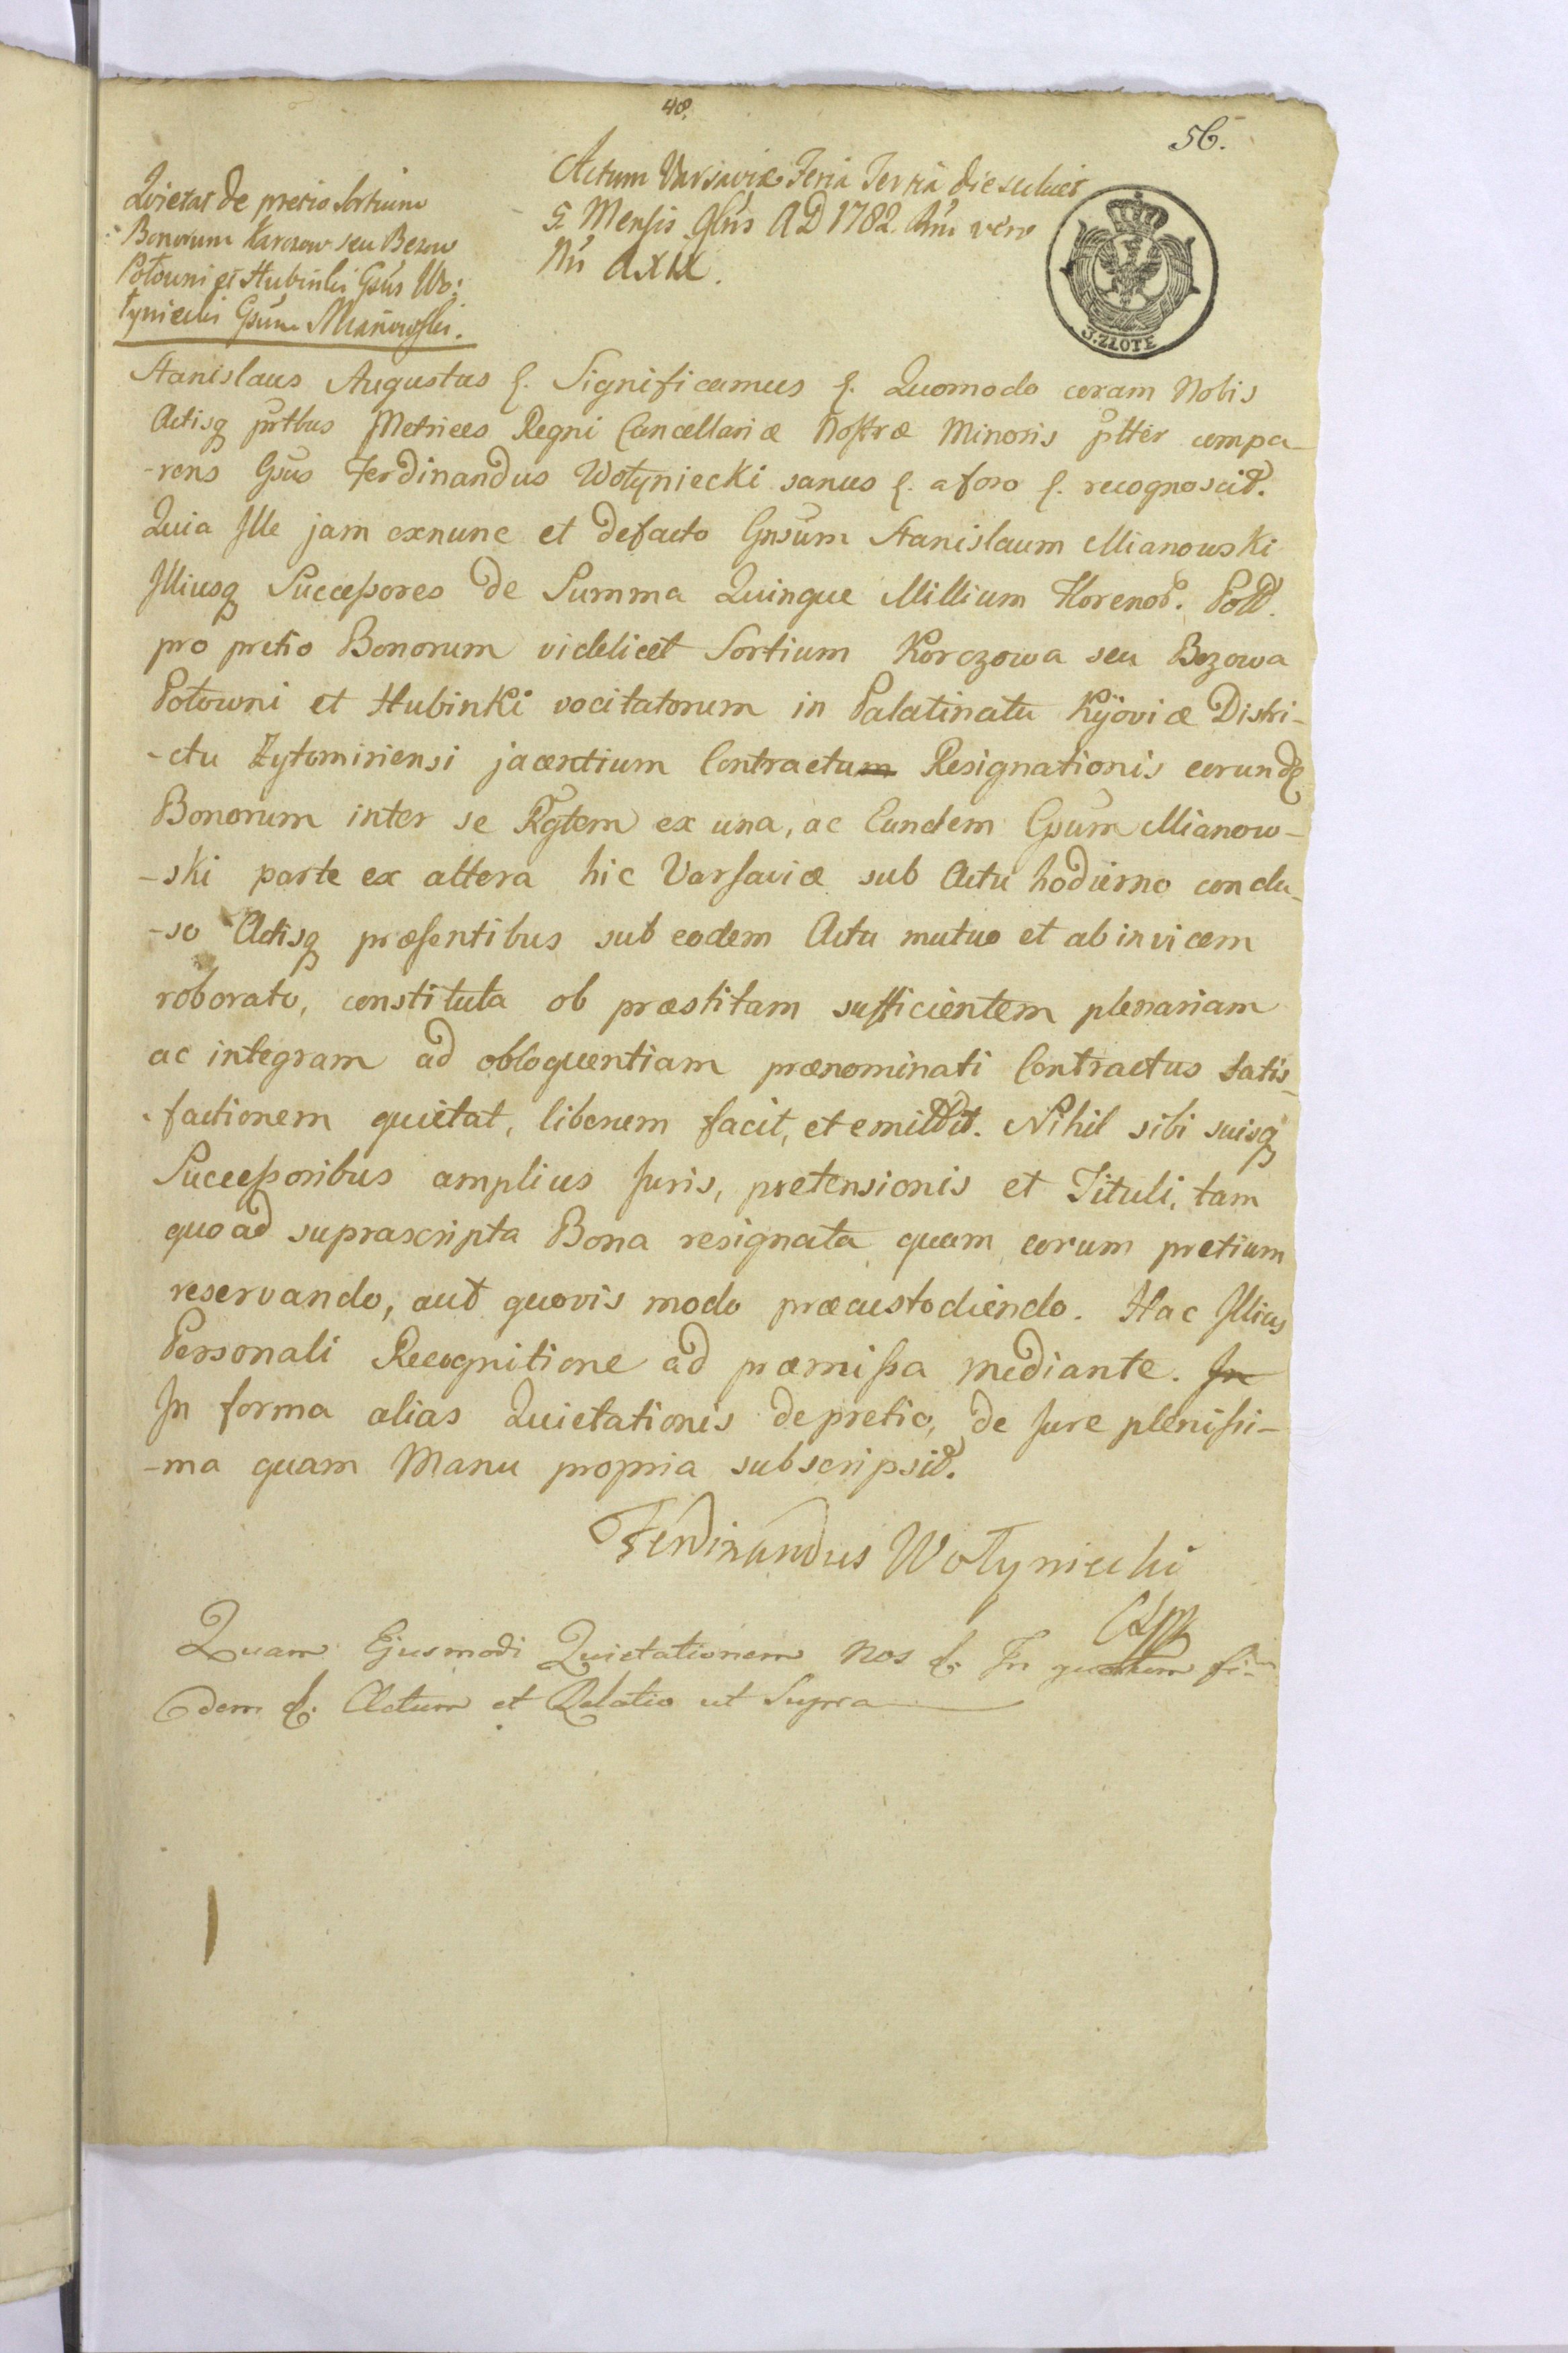 48.
56.
Quietat de pretio Sortium
Bonorum Karczow seu Bezow
Połowni et Hubinki Gsus Wo:
łyniecki Gsum Mianowski.
Actum Varsaviæ Feria Tertia die scilicet
5. Mensis 9bris AD 1782. Anni vero
Ni AXIX.
3. ZŁOTE
Stanislaus Augustus &. Significamus &. Quomodo coram Nobis
Actisq prtbus Metrices Regni Cancellariæ Nostræ Minoris pltter compa-
-rens Gsus Ferdinandus Wołyniecki sanus &. a foro &. recognoscit.
Quia Ille jam exnunc et defacto Gnsum Stanislaum Mianowski
Illiusq Successores de Summa Quinque Millium Florenor. Polld.
pro pretio Bonorum videlicet Sortium Korczowa seu Bezowa
Połowni et Hubinki vocitatorum in Palatinatu Kÿoviæ Distri-
-ctu Zytomiriensi jacentium Contractum Resignationis eorundq
Bonorum inter se Rgtem ex una, ac Eundem Gsum Mianow-
-ski parte ex altera hic Varsaviæ sub Actu hodierno conclu-
-so Actisq præsentibus sub eodem Actu mutuo et abinvicem
roborato, constituta ob præstitam sufficientem plenariam
ac integram ad obloquentiam prænominati Contractus satis-
-factionem quietat, liberum facit, et emittit. Nihil sibi suisq
Successoribus amplius Juris, pretensionis et Tituli, tam
quoad suprascripta Bona resignata quam eorum pretium
reservando, aut quovis modo præcustodiendo. Hac Illius
Personali Recognitione ad præmissa mediante. In
In forma alias Quietationis de pretio, de Jure plenissi-
-ma quam Manu propria subscripsit.
Ferdinandus Wołyniecki
Quam Ejusmodi Quietationem Nos &. In quorum fi-
dem &. Actum et Relatio ut Supra